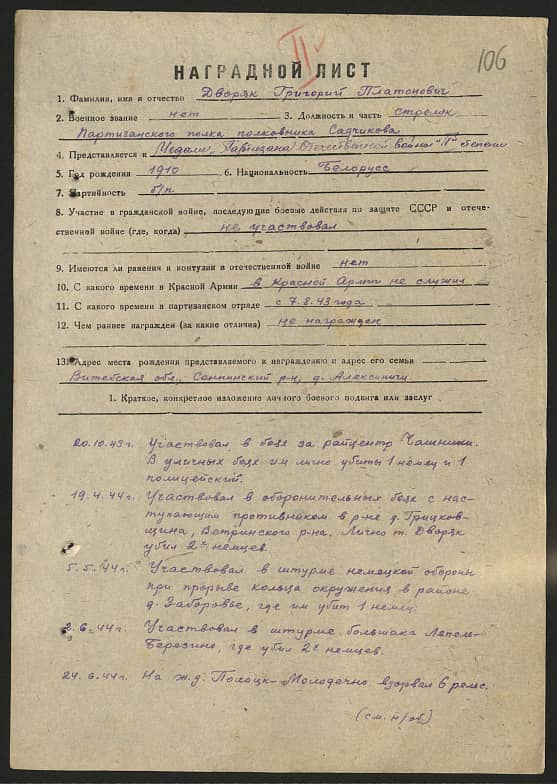 II
106
НАГРАДНОЙ ЛИСТ
1. Фамилия, имя и отчество Дворяк Григорий Платонович
2. Военное звание нет 3. Должность и часть стрелок
Партизанского полка полковника Садчикова
4. Представляется к Медали "Партизана Отечественной войны" II степени
5. Год рождения 1910 6. Национальность Белорусс
7. Партийность б/п.
8. Участие в гражданской войне, последующие боевые действия по защите СССР и отече-
ственной войне (где, когда) не участвовал
9. Имеются ли ранения и контузии в отечественной войне нет
10. С какого времени в Красной Армии в Красной Армии не служил
11. С какого времени в партизанском отряде с 7.8.43 года
12. Чем раннее награжден (за какие отличия) не награжден
13. Адрес места рождения представляемого к награждению и адрес его семьи
Витебская обл., Сеннинский р-н, д. Алексиничи
1. Краткое, конкретное изложение личного боевого подвига или заслуг
20.10.43г. Участвовал в боях за райцентр Чашники.
В уличных боях им лично убиты 1 немец и 1
полицейский.
19.4.44г. Участвовал в оборонительных боях с нас-
тупающим противником в р-не д. Грицков-
щина, Ветринского р-на. Лично т. Дворяк
убил 2х немцев.
5.5.44г. Участвовал в штурме немецкой обороны
при прорыве кольца окружения в районе
д. Заборовье, где им убит 1 немец.
2.6.44г. Участвовал в штурме большака Лепель-
Березино, где убил 2х немцев.
24.6.44г. На ж.д. Полоцк-Молодечно взорвал 6 рельс.
(см. н/об)